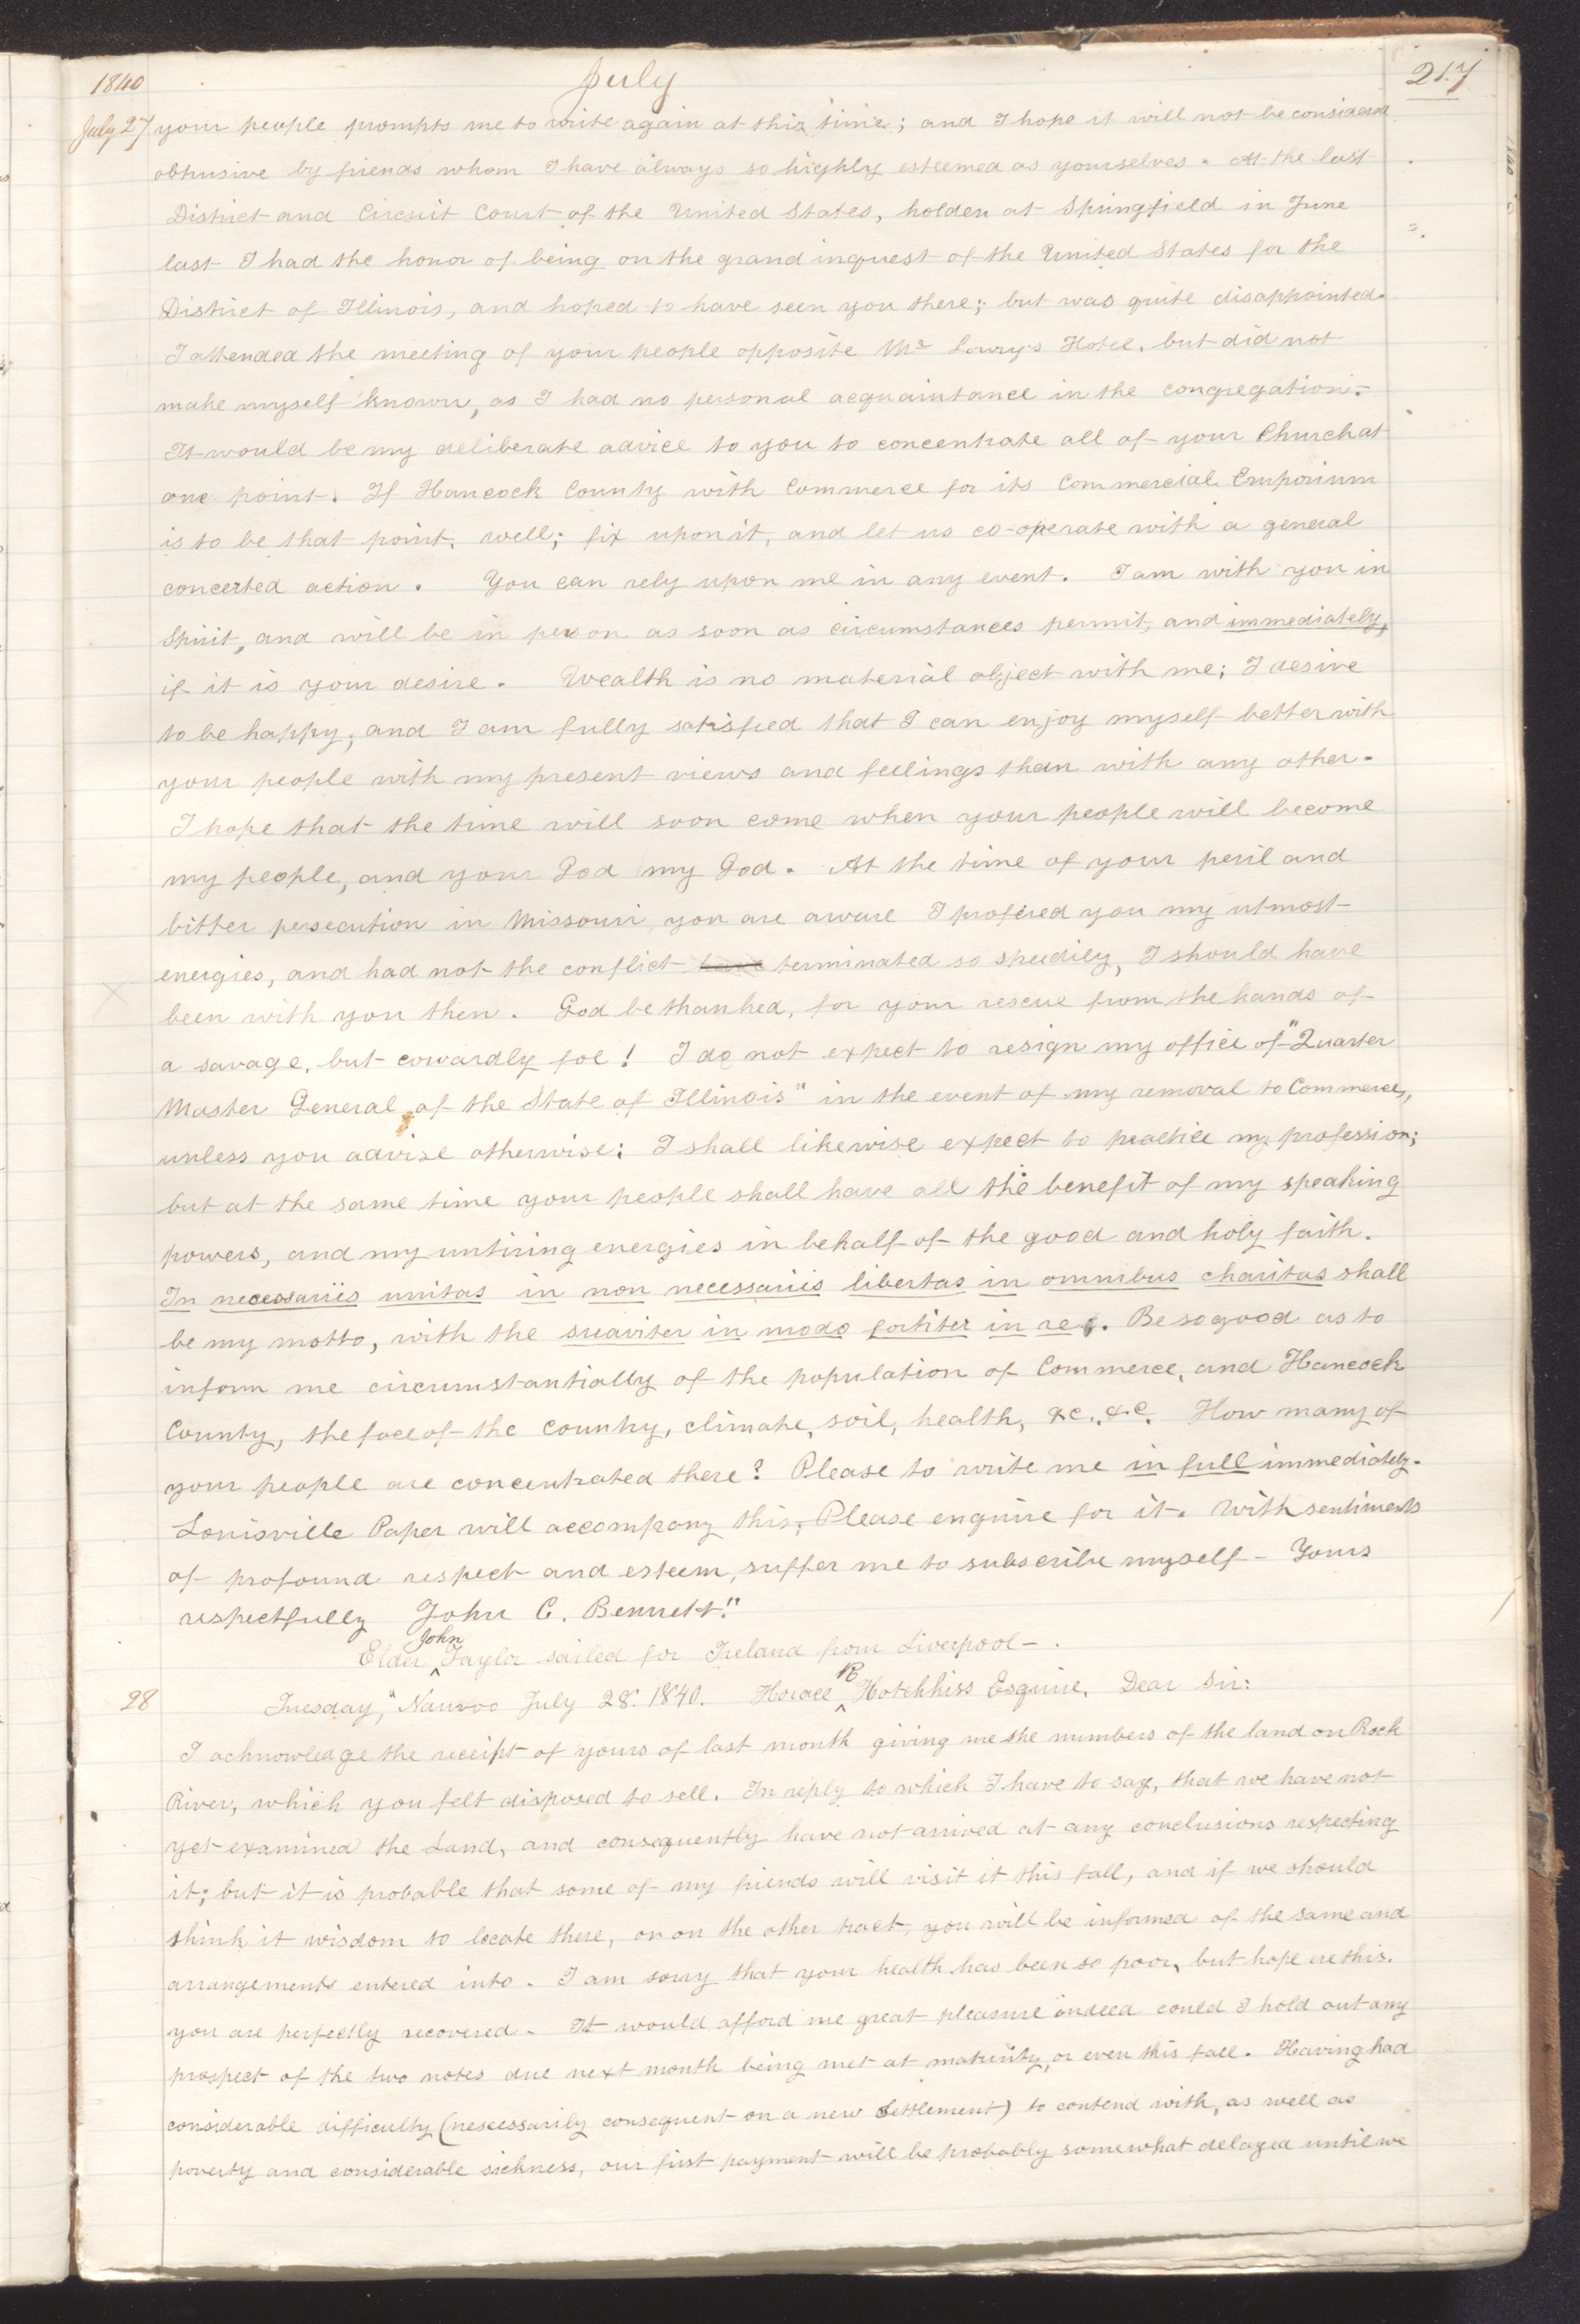 1840 July 217
July 27 your people prompts me to write again at this time; and I hope it will not be considered
obtrusive by friends whom I have always so highly esteemed as yourselves. At the last
District and Circuit Court of the United States, holden at Springfield in June
last I had the honor of being on the grand inquest of the United States for the
District of Illinois, and hoped to have seen you there; but was quite disappointed.
I attended the meeting of your people opposite Mr Lowry's Hotel, but did not
make myself known, as I had no personal acquaintance in the congregation.
It would be my deliberate advice to you to concentrate all of your Church at
one point. If Hancock County with Commerce for its Commercial Emporium
is to be that point, well; fix upon it, and let us co-operate with a general
concerted action. You can rely upon me in any event. I am with you in
Spirit, and will be in person as soon as circumstances permit, and immediately,
if it is your desire. Wealth is no material object with me; I desire
to be happy; and I am fully satisfied that I can enjoy myself better with
your people with my present views and feelings than with any other.
I hope that the time will soon come when your people will become
my people, and your God my God. At the time of your peril and
bitter persecution in Missouri you are aware I profered you my utmost
energies, and had not the conflict have terminated so speedily, I should have
been with you then. God be thanked, for your rescue from the hands of
a savage, but cowardly foe! I do not expect to resign my office of "Quarter
Master General of the State of Illinois" in the event of my removal to Commerce,
unless you advise otherwise: I shall likewise expect to practice my profession;
but at the same time your people shall have all the benefit of my speaking
powers, and my untiring energies in behalf of the good and holy faith.
In necessariis unitas in non necessariis libertas in omnibus charitas shall
be my motto, with the suaviter in modo fortiter in re. Be so good as to
inform me circumstantially of the population of Commerce, and Hancock
County, the face of the country, climate, soil, health, &c., &c. How many of
your people are concentrated there? Please to write me in full immediately.
Louisville Paper will accompany this; Please enquire for it. With sentiments
of profound respect and esteem, suffer me to subscribe myself - Yours
respectfully John C. Bennett."
Elder John Taylor sailed for Ireland from Liverpool -.
28 Tuesday, "Nauvoo July 28. 1840. Horace R Hotchkiss Esquire, Dear Sir:
I acknowledge the receipt of yours of last month giving me the numbers of the land on Rock
River, which you felt disposed to sell. In reply to which I have to say, that we have not
yet examined the Land, and consequently have not arrived at any conclusions respecting
it; but it is probable that some of my friends will visit it this fall, and if we should
think it wisdom to locate there, or on the other tract, you will be informed of the same and
arrangements entered into. I am sorry that your health has been so poor, but hope ere this.
you are perfectly recovered. It would afford me great pleasure indeed could I hold out any
prospect of the two notes due next month being met at maturity, or even this fall. Having had
considerable difficulty (nescessarily consequent on a new Settlement) to contend with, as well as
poverty and considerable sickness, our first payment will be probably somewhat delayed until we